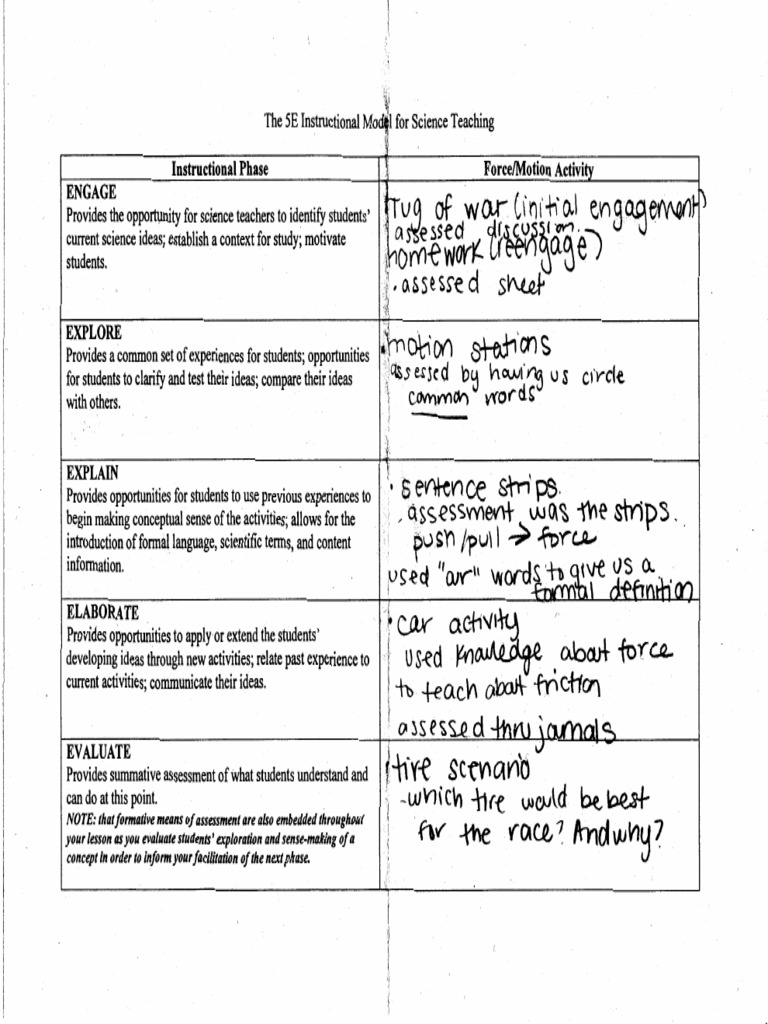 The 5E Instructional Model for Science Teaching
Instructional Phase
Force/Motion Activity
ENGAGE
Provides the opportunity for science teachers to identify students'
current science ideas; establish a context for study; motivate
students.
Tug of war (initial engagement)
assessed discussion.
homework (reengage)
. assessed sheet
EXPLORE
Provides a common set of experiences for students; opportunities
for students to clarify and test their ideas; compare their ideas
with others.
• motion stations
assessed by having us circle
common words
EXPLAIN
Provides opportunities for students to use previous experiences to
begin making conceptual sense of the activities; allows for the
introduction of formal language, scientific terms, and content
information.
• sentence strips.
. assessment was the strips.
push/pull → force
used "our" words to give us a
formal definition
ELABORATE
Provides opportunities to apply or extend the students'
developing ideas through new activities; relate past experience to
current activities; communicate their ideas.
• car activity
used knowledge about force
to teach about friction
assessed thru jornals
EVALUATE
Provides summative assessment of what students understand and
can do at this point.
NOTE: that formative means of assessment are also embedded throughout
your lesson as you evaluate students' exploration and sense-making of a
concept in order to inform your facilitation of the next phase.
tire scenario
- which tire would be best
for the race? And why?